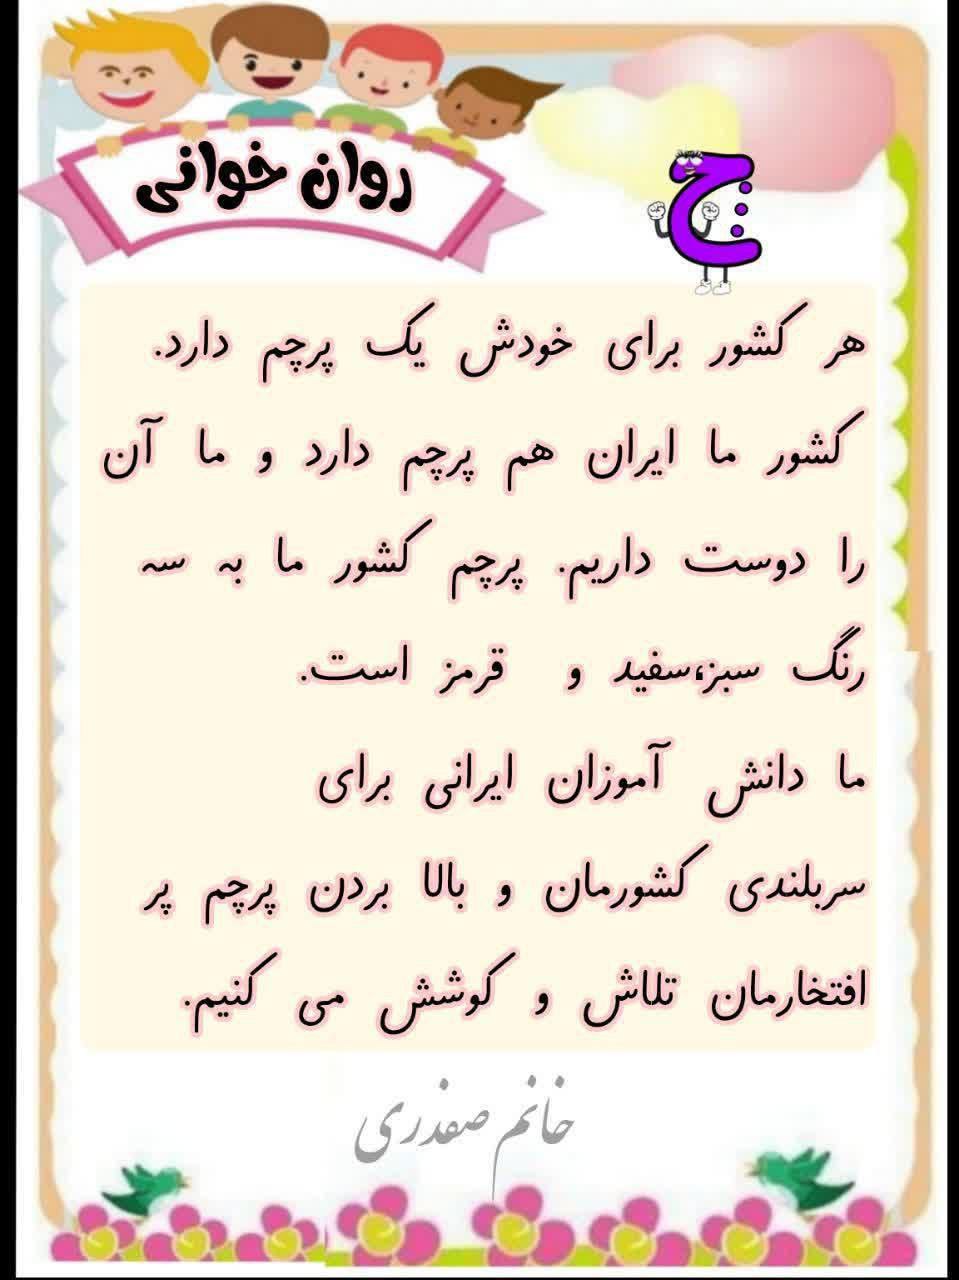 روان خوانی
چ
هر کشور برای خودش یک پرچم دارد.
کشور ما ایران هم پرچم دارد و ما آن
را دوست داریم. پرچم کشور ما به سه
رنگ سبز،سفید و قرمز است.
ما دانش آموزان ایرانی برای
سربلندی کشورمان و بالا بردن پرچم پر
افتخارمان تلاش و کوشش می کنیم.
خانم صفدری